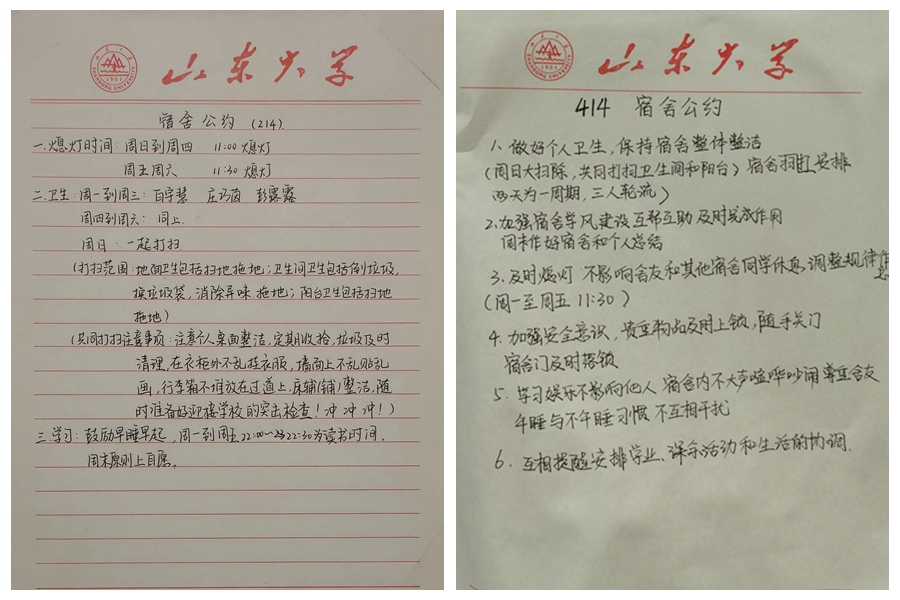 山东大学
SHANDONG UNIVERSITY
1901
宿舍公约 (214).
一.熄灯时间: 周日到周四 11:00 熄灯
周五周六 11:30 熄灯
二.卫生: 周一到周三: 百守慧 庄巧茵 彭露露
周四到周六: 同上.
周日: 一起打扫
(打扫范围: 地面卫生包括扫地拖地; 卫生间卫生包括倒垃圾,
换垃圾袋, 消除异味. 拖地; 阳台卫生包括扫地
拖地)
(共同打扫注意事项: 注意个人桌面整洁, 定期收拾, 垃圾及时
清理, 在衣柜外不乱挂衣服, 墙面上不乱贴乱
画, 行李箱不堆放在过道上, 床铺(铺)整洁, 随
时准备好迎接学校的突击检查! 冲 冲 冲!)
三.学习: 鼓励早睡早起, 周一到周五 22:00~22:30为读书时间.
周末原则上自愿。
山东大学
SHANDONG UNIVERSITY
1901
414 宿舍公约
1、做好个人卫生, 保持宿舍整体整洁
(周日大扫除, 共同打扫卫生间和阳台) 宿舍扫地安排
两天为一周期, 三人轮流)
2.加强宿舍学风建设 互帮互助 及时完成作用
周末作好宿舍和个人总结
3、及时熄灯 不影响舍友和其他宿舍同学休息, 调整规律作息
(周一至周五 11:30)
4. 加强安全意识, 贵重物品及时上锁, 随手关门
宿舍门及时落锁
5. 学习娱乐不影响他人 宿舍内不大声喧哗吵闹 尊重舍友
午睡与不午睡习惯 不互相干扰
6. 互相提醒安排学业、课余活动和生活的协调.